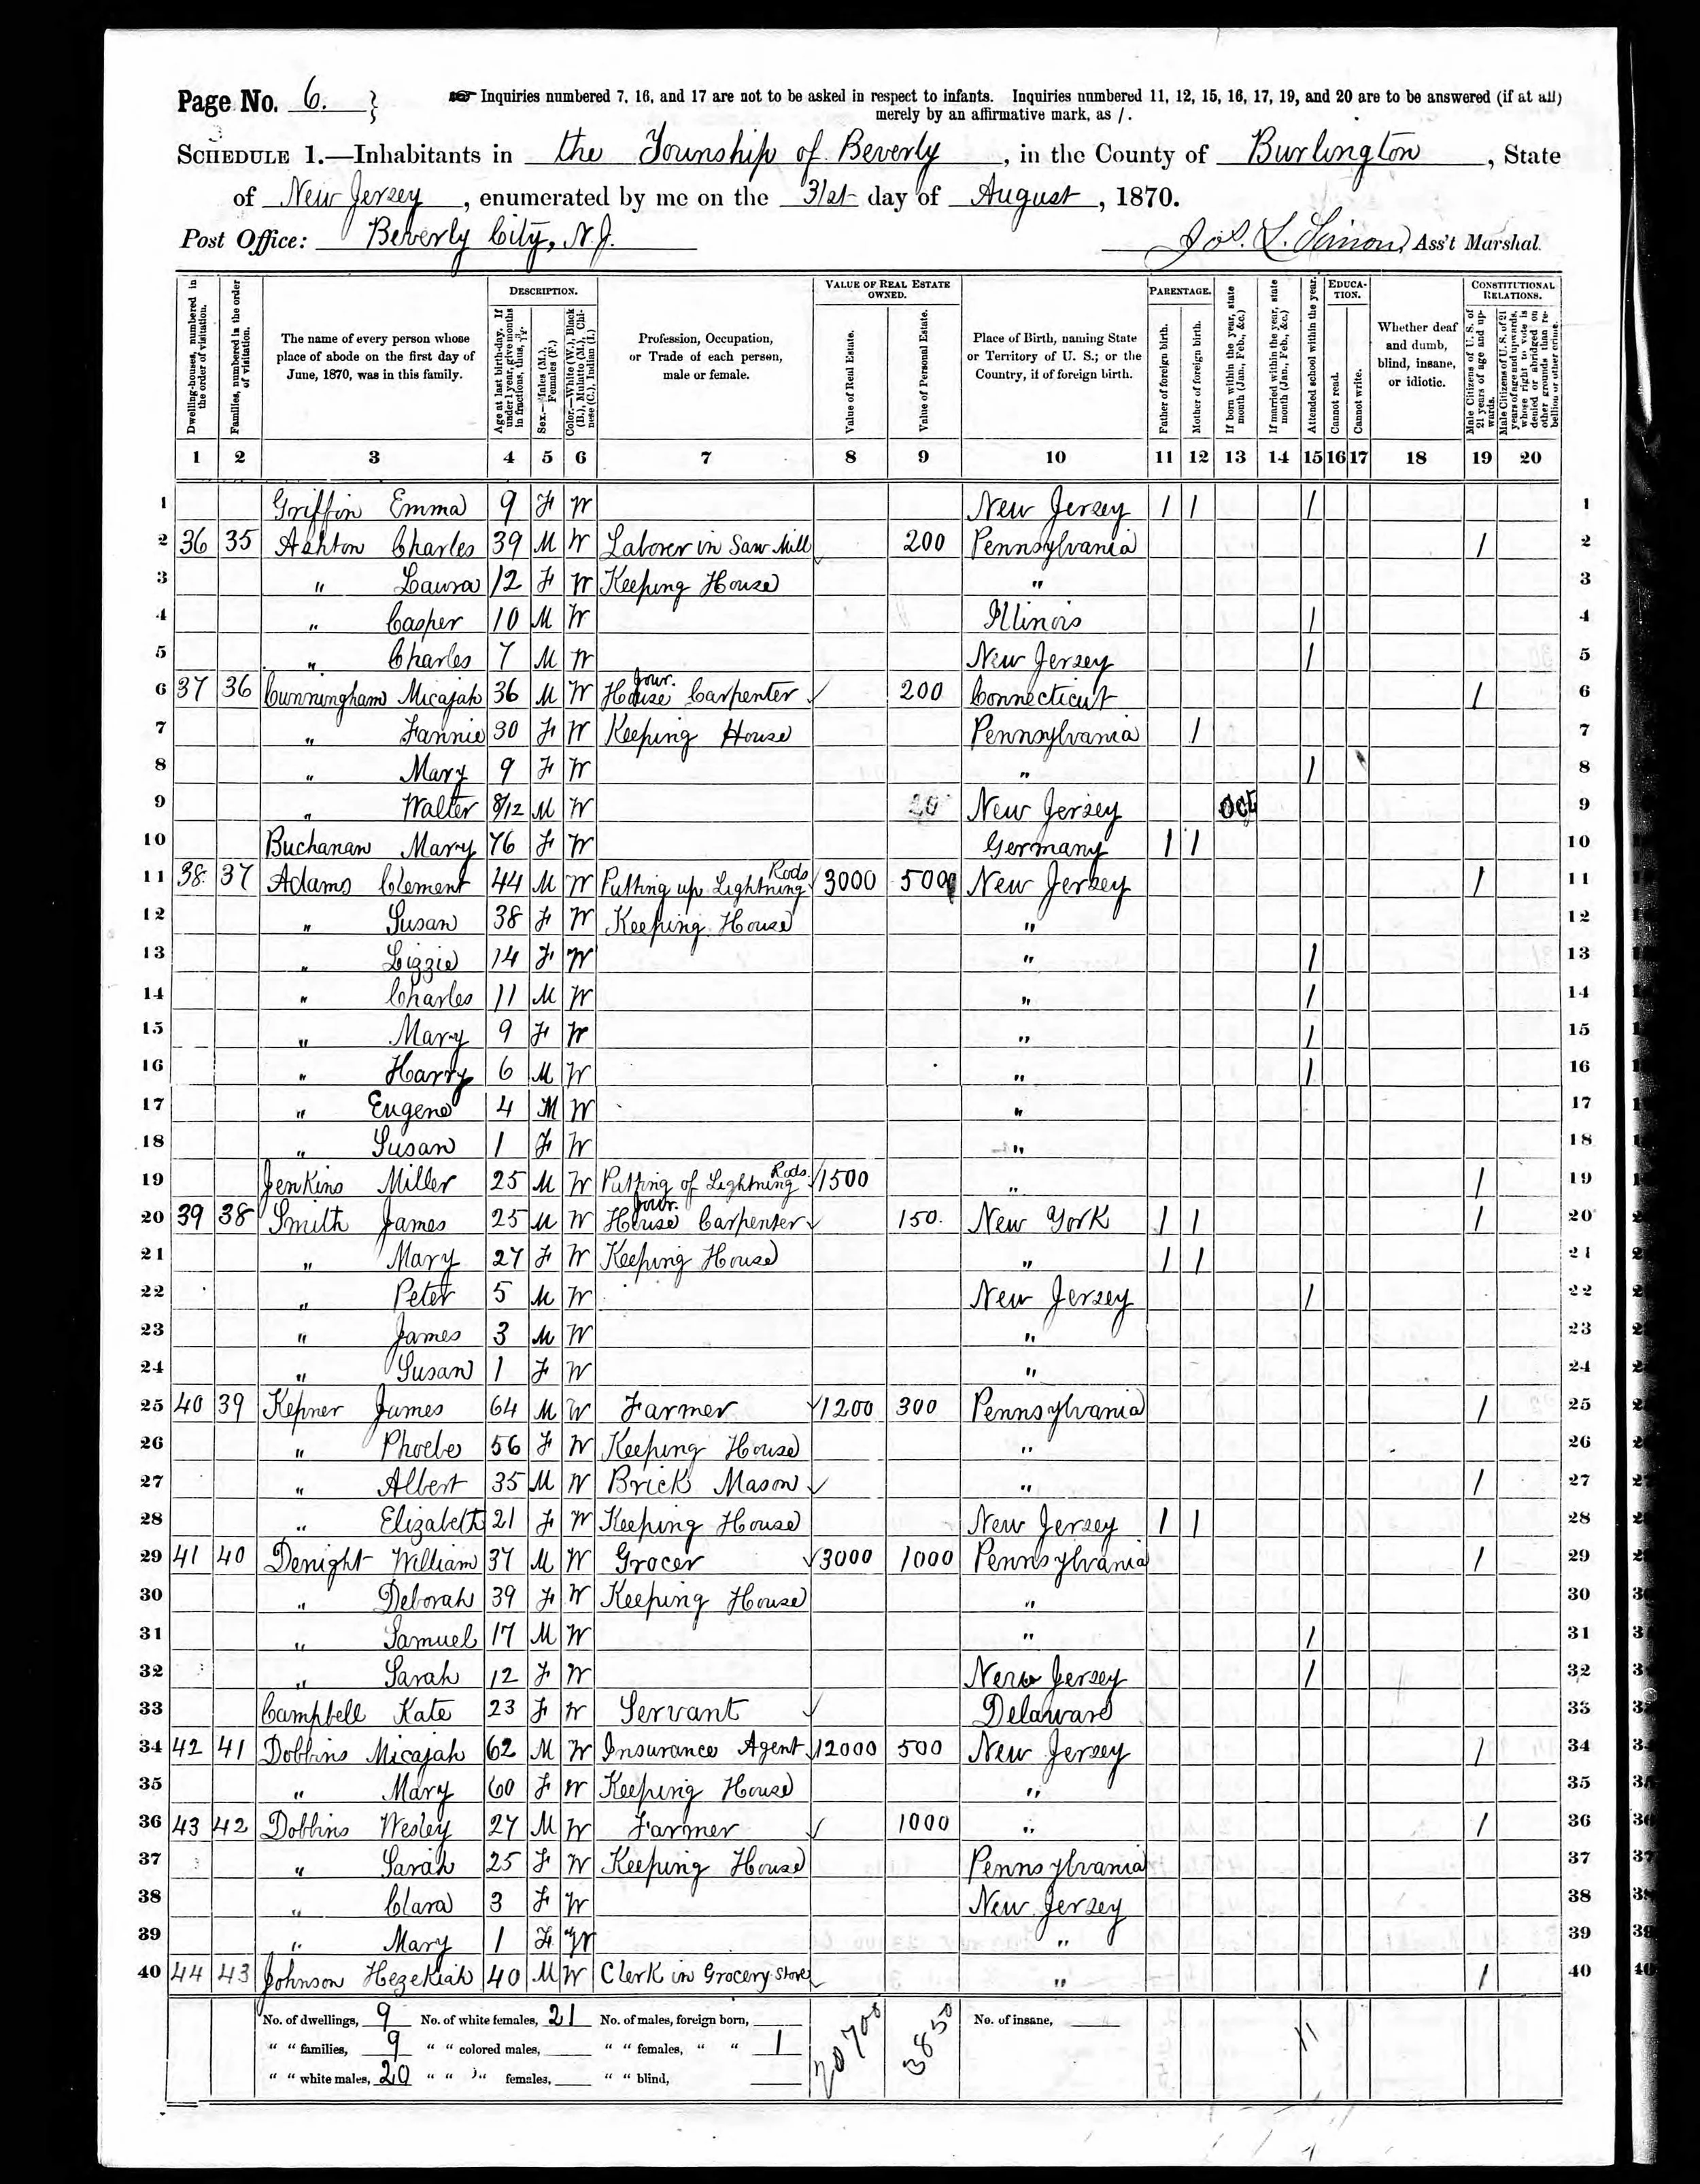 Page No. 6. }
Inquiries numbered 7, 16, and 17 are not to be asked in respect to infants. Inquiries numbered 11, 12, 15, 16, 17, 19, and 20 are to be answered (if at all)
merely by an affirmative mark, as /.
SCHEDULE 1.—Inhabitants in the Township of Beverly, in the County of Burlington, State
of New Jersey, enumerated by me on the 31st day of August, 1870.
Post Office: Beverly City, N.J.
Jos. L. Simon, Ass't Marshal.
Dwelling-houses, numbered in the order of visitation.
Families, numbered in the order of visitation.
The name of every person whose place of abode on the first day of June, 1870, was in this family.
DESCRIPTION.
Age at last birth-day. If under 1 year, give months in fractions, thus, 3/12.
Sex.—Males (M.), Females (F.)
Color.—White (W.), Black (B.), Mulatto (M.), Chinese (C.), Indian (I.)
Profession, Occupation, or Trade of each person, male or female.
VALUE OF REAL ESTATE OWNED.
Value of Real Estate.
Value of Personal Estate.
Place of Birth, naming State or Territory of U. S.; or the Country, if of foreign birth.
PARENTAGE.
Father of foreign birth.
Mother of foreign birth.
If born within the year, state month (Jan., Feb., &c.)
If married within the year, state month (Jan., Feb., &c.)
Attended school within the year.
EDUCATION.
Cannot read.
Cannot write.
Whether deaf and dumb, blind, insane, or idiotic.
CONSTITUTIONAL RELATIONS.
Male Citizens of U. S. of 21 years of age and upwards.
Male Citizens of U. S. of 21 years of age and upwards, whose right to vote is denied or abridged on other grounds than rebellion or other crime.
1 2 3 4 5 6 7 8 9 10 11 12 13 14 15 16 17 18 19 20
1 Griffin Emma 9 F W New Jersey / / / 1
2 36 35 Ashton Charles 39 M W Laborer in Saw Mill 200 Pennsylvania / 2
3 " Laura 12 F W Keeping House " 3
4 " Casper 10 M W Illinois / 4
5 " Charles 7 M W New Jersey / 5
6 37 36 Cunningham Micajah 36 M W Jour. House Carpenter 200 Connecticut / 6
7 " Fannie 30 F W Keeping House Pennsylvania / 7
8 " Mary 9 F W " / 8
9 " Walter 8/12 M W New Jersey Oct 9
10 Buchanan Mary 76 F W Germany / / 10
11 38 37 Adams Clement 44 M W Putting up Lightning Rods 3000 500 New Jersey / 11
12 " Susan 38 F W Keeping House " 12
13 " Lizzie 14 F W " / 13
14 " Charles 11 M W " / 14
15 " Mary 9 F W " / 15
16 " Harry 6 M W " / 16
17 " Eugene 4 M W " 17
18 " Susan 1 F W " 18
19 Jenkins Miller 25 M W Putting of Lightning Rods 1500 " / 19
20 39 38 Smith James 25 M W Jour. House Carpenter 150. New York / / / 20
21 " Mary 27 F W Keeping House " / / 21
22 " Peter 5 M W New Jersey / 22
23 " James 3 M W " 23
24 " Susan 1 F W " 24
25 40 39 Kepner James 64 M W Farmer 1200 300 Pennsylvania / 25
26 " Phoebe 56 F W Keeping House " 26
27 " Albert 35 M W Brick Mason " / 27
28 " Elizabeth 21 F W Keeping House New Jersey / / 28
29 41 40 Denight William 37 M W Grocer 3000 1000 Pennsylvania / 29
30 " Deborah 39 F W Keeping House " 30
31 " Samuel 17 M W " / 31
32 " Sarah 12 F W New Jersey / 32
33 Campbell Kate 23 F W Servant Delaware 33
34 42 41 Dobbins Micajah 62 M W Insurance Agent 12000 500 New Jersey / 34
35 " Mary 60 F W Keeping House " 35
36 43 42 Dobbins Wesley 27 M W Farmer 1000 " / 36
37 " Sarah 25 F W Keeping House Pennsylvania 37
38 " Clara 3 F W New Jersey 38
39 " Mary 1 F W " 39
40 44 43 Johnson Hezekiah 40 M W Clerk in Grocery Store " / 40
No. of dwellings, 9 No. of white females, 21 No. of males, foreign born, 20700 3850 No. of insane, 11
" " families, 9 " " colored males, " " females, " " 1
" " white males, 20 " " " females, " " blind,